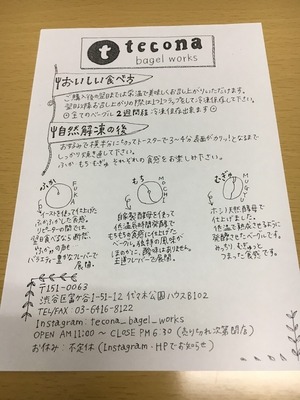 t tecona
bagel works
おいしい食べ方
ご購入後の翌日までは常温で美味しくお召し上がりいただけます。
翌日以降お召し上がりの際は1コ1コラップをして冷凍保存して下さい。
全てのベーグル2週間程冷凍保存出来ます
自然解凍の後
お好みで横半分にきってトースターで3〜4分表面がカリッ!となるまで
しっかり焼き直して下さい。
ふか・もち・むぎゅ それぞれの食感をお楽しみ下さい。
ふか FUKA
イーストを使って仕上げた
ふわふわとした食感。
バラエティー豊かなフレーバーで
展開。
もち MOCHI
自家製酵母を使って
低温長時間発酵で
もちもちの食感に仕上げた
ベーグル。独特の風味が
ほのかに。酸味はありません。
王道フレーバーで展開。
むぎゅ MUGYU
ホシノ天然酵母で
仕上げました。
低温で熟成させるように
発酵させたベーグルです。
むっちり、むぎゅっと
つまった食感です。
〒151-0063
渋谷区富ヶ谷1-51-12 代々木公園ハウスB102
TEL/FAX 03-6416-8122
Instagram: tecona_bagel_works
OPEN AM 11:00 〜 CLOSE PM 6:30 (売り切れ次第閉店)
お休み:不定休 (Instagram・HPでお知らせ)